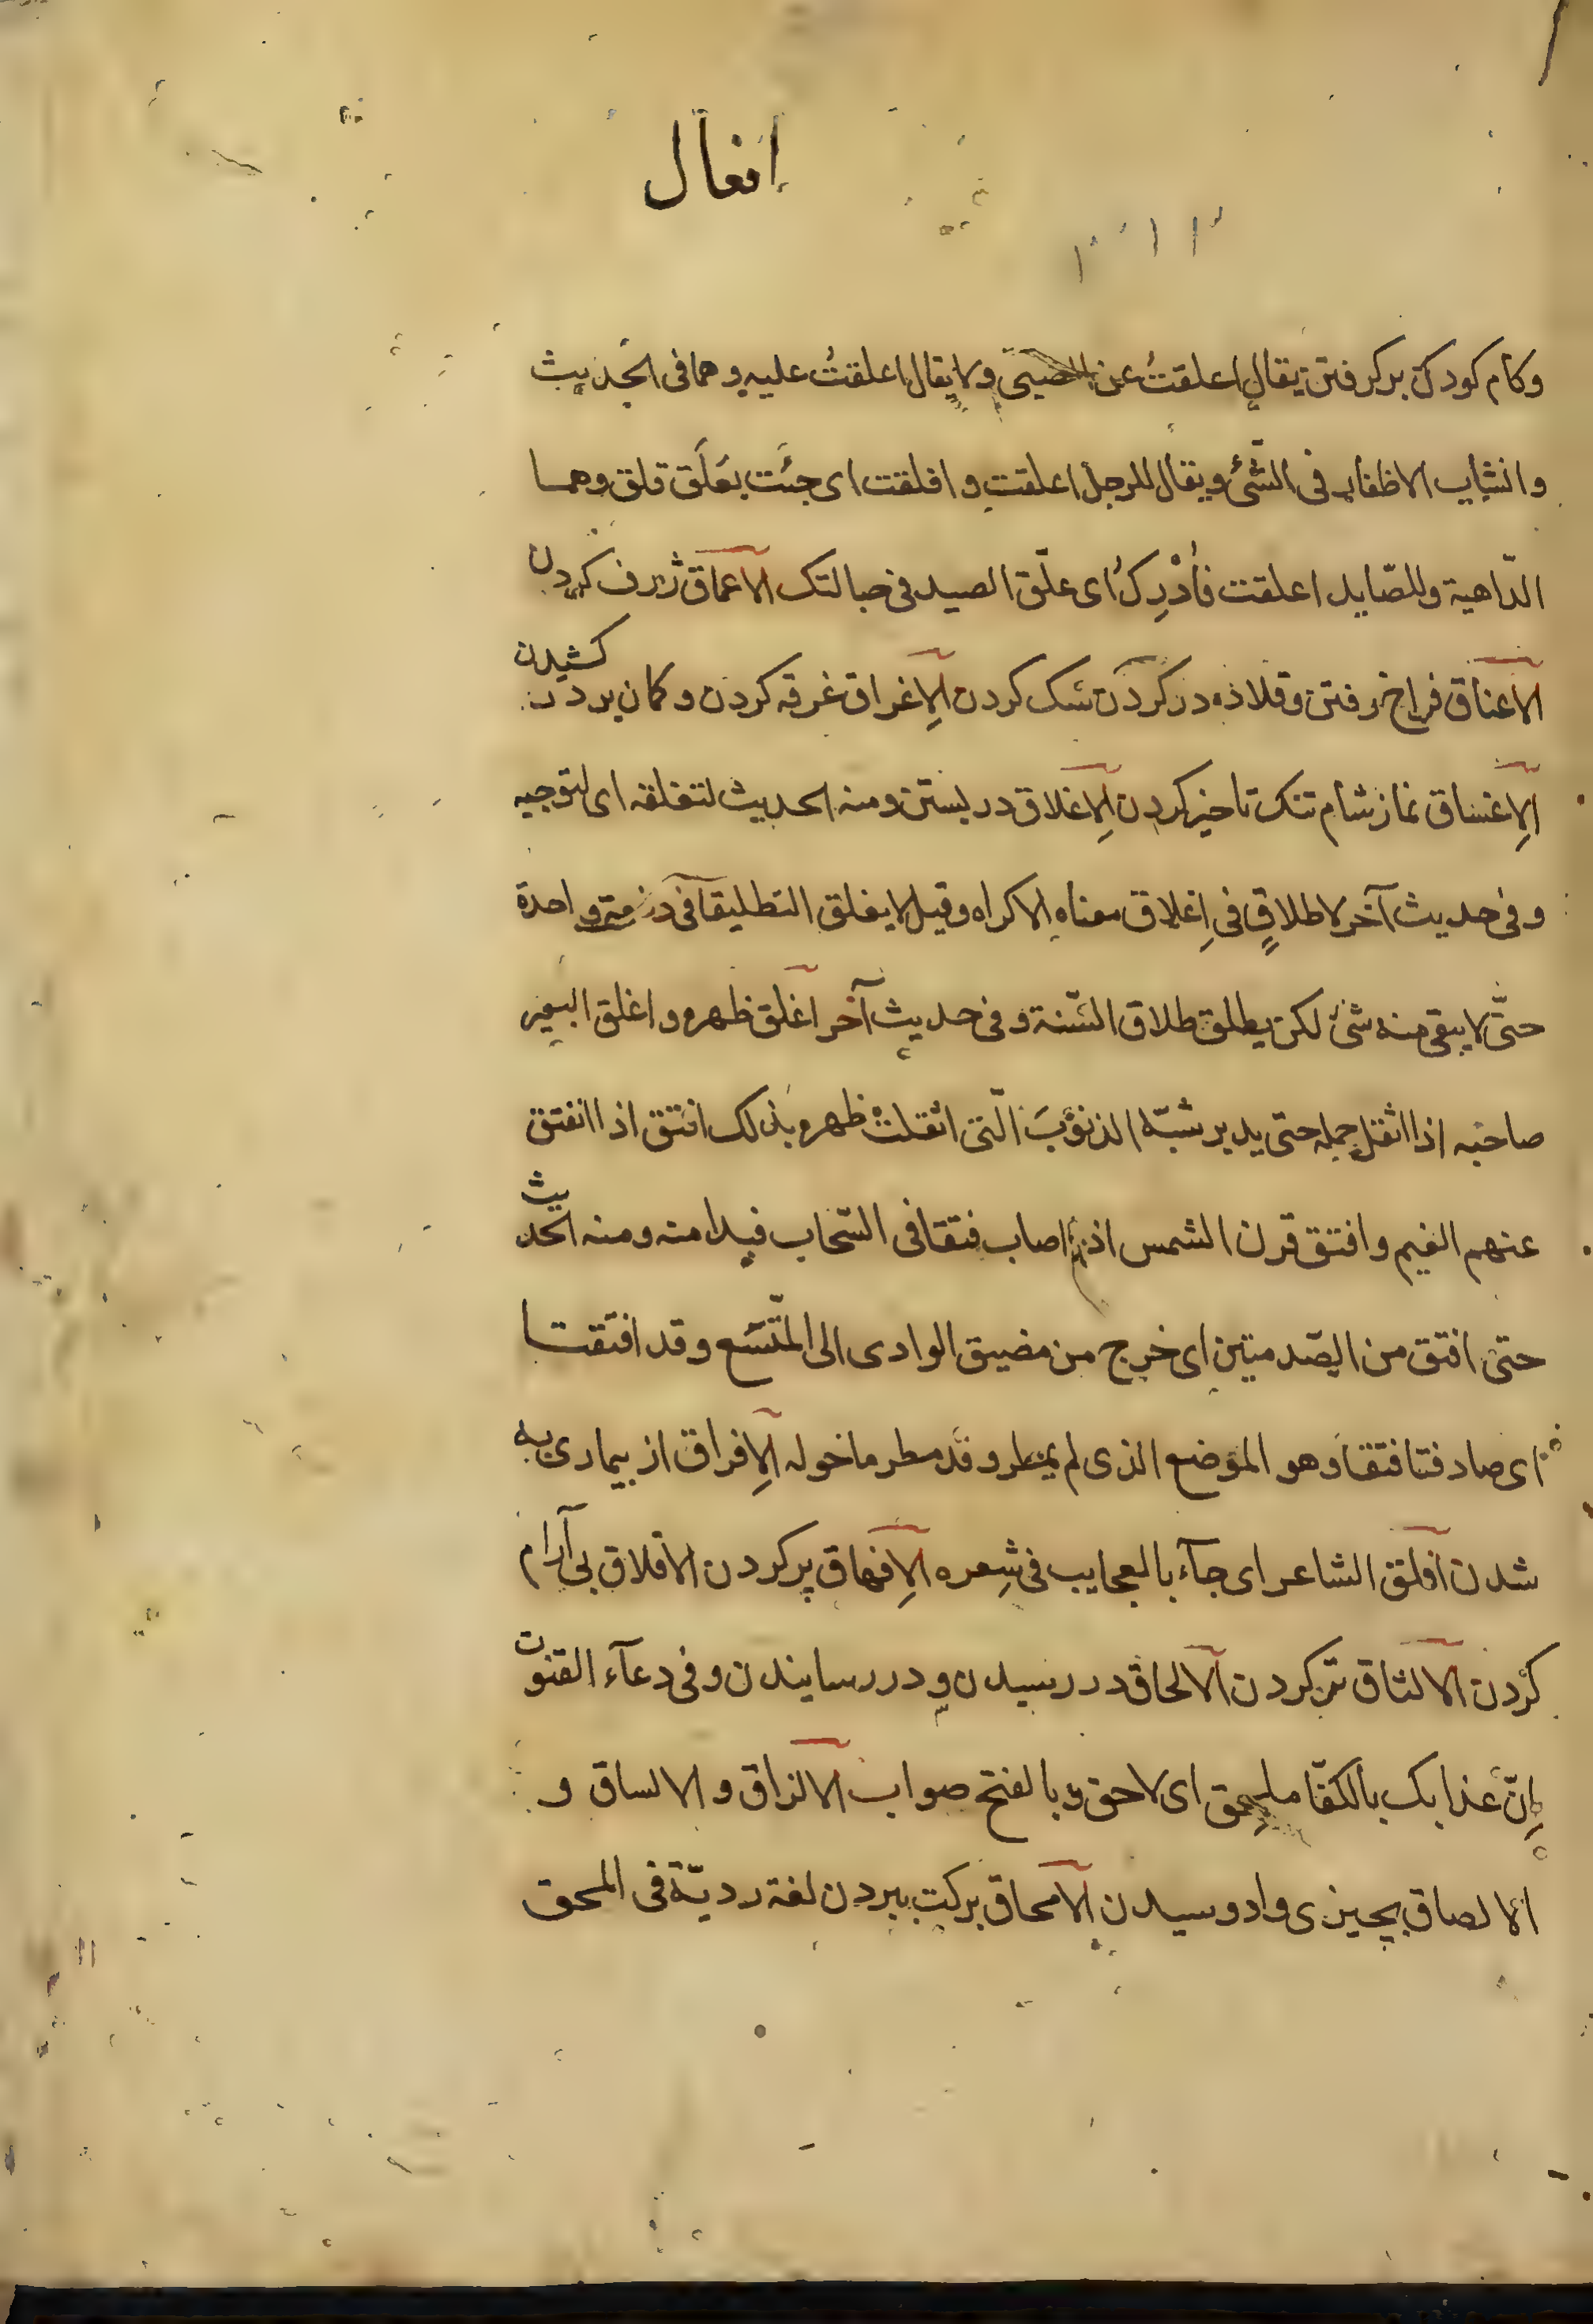 افعال
وكام كودك بركرفتن يقال اعلقتُ عن الصبىّ ولا يقال اعلقتُ عليه وهما فى الحديث
وانشاب الاظفار فى الشّئ ويقال للرجل اعلقت وافلقت اى جئت بعَلَق فلق وهما
الدّاهية وللصّايد اعلقت فأدْرِكْ اى علّق الصيد فى حبالتك الاعماق ژرف كردن
الاعناق فراخ رفتن وقلاذه در كردن سك كردن الاِغراق غرقه كردن وكمان پر در كشيدن
الاِغساق نماز شام تنك تاخير كردن الاِغلاق در بستن ومنه الحديث لتغلقه اى لتوجبه
وفى حديث آخر لا طلاقٍ فى اِغلاق معناه الاكراه وقيل لا يغلق التطليقا فى دفعة واحدة
حتّى لا يبقى منه شئ لكن يطلق طلاق السّنة وفى حديث آخر اغلق ظهره واغلق البعير
صاحبه اذا اثقل حمله حتى يدبر شبّه الذنوبَ الّتى اثقلتْ ظهره بذلك افتق اذا انفتق
عنهم الغيم وافتق قرن الشمس اذا اصاب فتقا فى السّحاب فبدا منه ومنه الحديث
حتى افتق من الصّدمتين اى خرج من مضيق الوادى الى المتّسَع وقد افتقنا
اى صادفنا فتقا وهو الموضع الذى لم يمطر وقد مطر ما حوله الاِفراق از بيمارى به
شدن افلق الشاعر اى جآء بالعجايب فى شِعره الاِفهاق پر كردن الاقلاق بى آرام
كردن الالثاق تر كردن الالحاق در رسيدن و در رسانيدن وفى دعآء القنوت
اِنّ عذابك بالكفّار ملحِق اى لاحق وبالفتح صواب الالزاق والالساق و
الالصاق بچيزى وادوسيدن الامحاق بركت ببردن لغة رديّة فى المحق